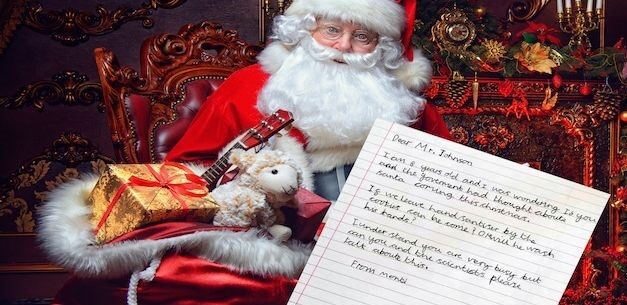 Dear Mr. Johnson
I am 8 years old and I was wondering if you
and the goverment had thought about
santa coming this christmas.
If we leave hand sanitiser by the
cookies can he come? Or Will he wash
his hands?
I understand you are very busy but
can you and the scientists please
talk about this.
From monti